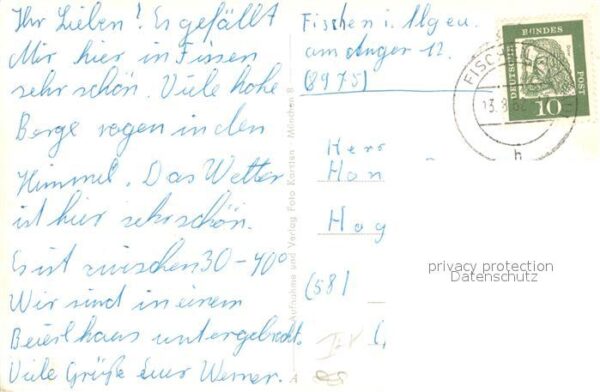 Ihr Lieben! Es gefällt
Mir hier in Fissen
sehr schön. Viele hohe
Berge ragen in den
Himmel. Das Wetter
ist hier sehr schön.
Es ist zwischen 30-40°
Wir sind in einem
haus untergebracht.
Viele Grüße Euer Werner.
Aufnahme und Verlag Foto Korsten München 8
Fischen i. Allgeu.
am Anger 12.
(8975)
Herr
Han
Hag
(58)
DEUTSCHE
BUNDES
POST
10
FISCHEN
h
privacy protection
Datenschutz